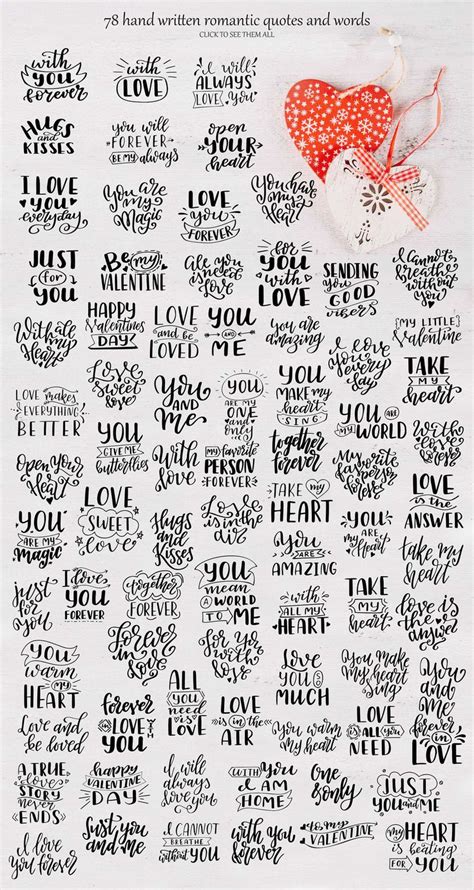 78 hand written romantic quotes and words
CLICK TO SEE THEM ALL
with YOU forever
with LOVE
I will ALWAYS LOVE you
HUGS and KISSES
you will FOREVER BE MY always
open YOUR heart
I LOVE YOU everyday
You are my Magic
LOVE YOU FOREVER
You have my Heart
JUST for YOU
Be my VALENTINE
All you need is love
for YOU with LOVE
SENDING YOU GOOD vibes
I cannot breathe without you
With all my Heart
HAPPY Valentines DAY
LOVE and be LOVED
YOU AND ME
You are amazing
I love You every day
{MY LITTLE} Valentine
TAKE MY HEART
LOVE makes EVERYTHING BETTER
Love sweet love
You AND Me
YOU ARE MY ONE and only
YOU MAKE MY heart SING
YOU ARE MY WORLD
With love
Open Your Heart
YOU GIVE ME butterflies
With love
MY favorite PERSON FOREVER
together forever
My favorite person forever
LOVE is the ANSWER
YOU ARE MY MAGIC
LOVE SWEET love
Hugs and Kisses
Love is in the air
TAKE my HEART
You are my Heart
Take my heart
You ARE AMAZING
just for YOU
I love YOU FOREVER
together FOREVER
YOU mean A WORLD TO ME
with ALL MY HEART
TAKE MY HEART
love is the answer
YOU warm MY HEART
Forever in love
For You with love
Love YOU SO MUCH
You make my heart sing
You and me forever in LOVE
Love and be loved
forever LOVE YOU
ALL you NEED is LOVE
LOVE IS IN THE AIR
You warm my heart
LOVE IS ALL YOU NEED
A TRUE love STORY never ENDS
happy VALENTINE DAY
I will always love You
WITH YOU I AM HOME
One & only
JUST YOU and ME
I love You forever
Just You and Me
I CANNOT BREATHE without YOU
with You forever
to my VALENTINE
MY HEART is beating FOR YOU